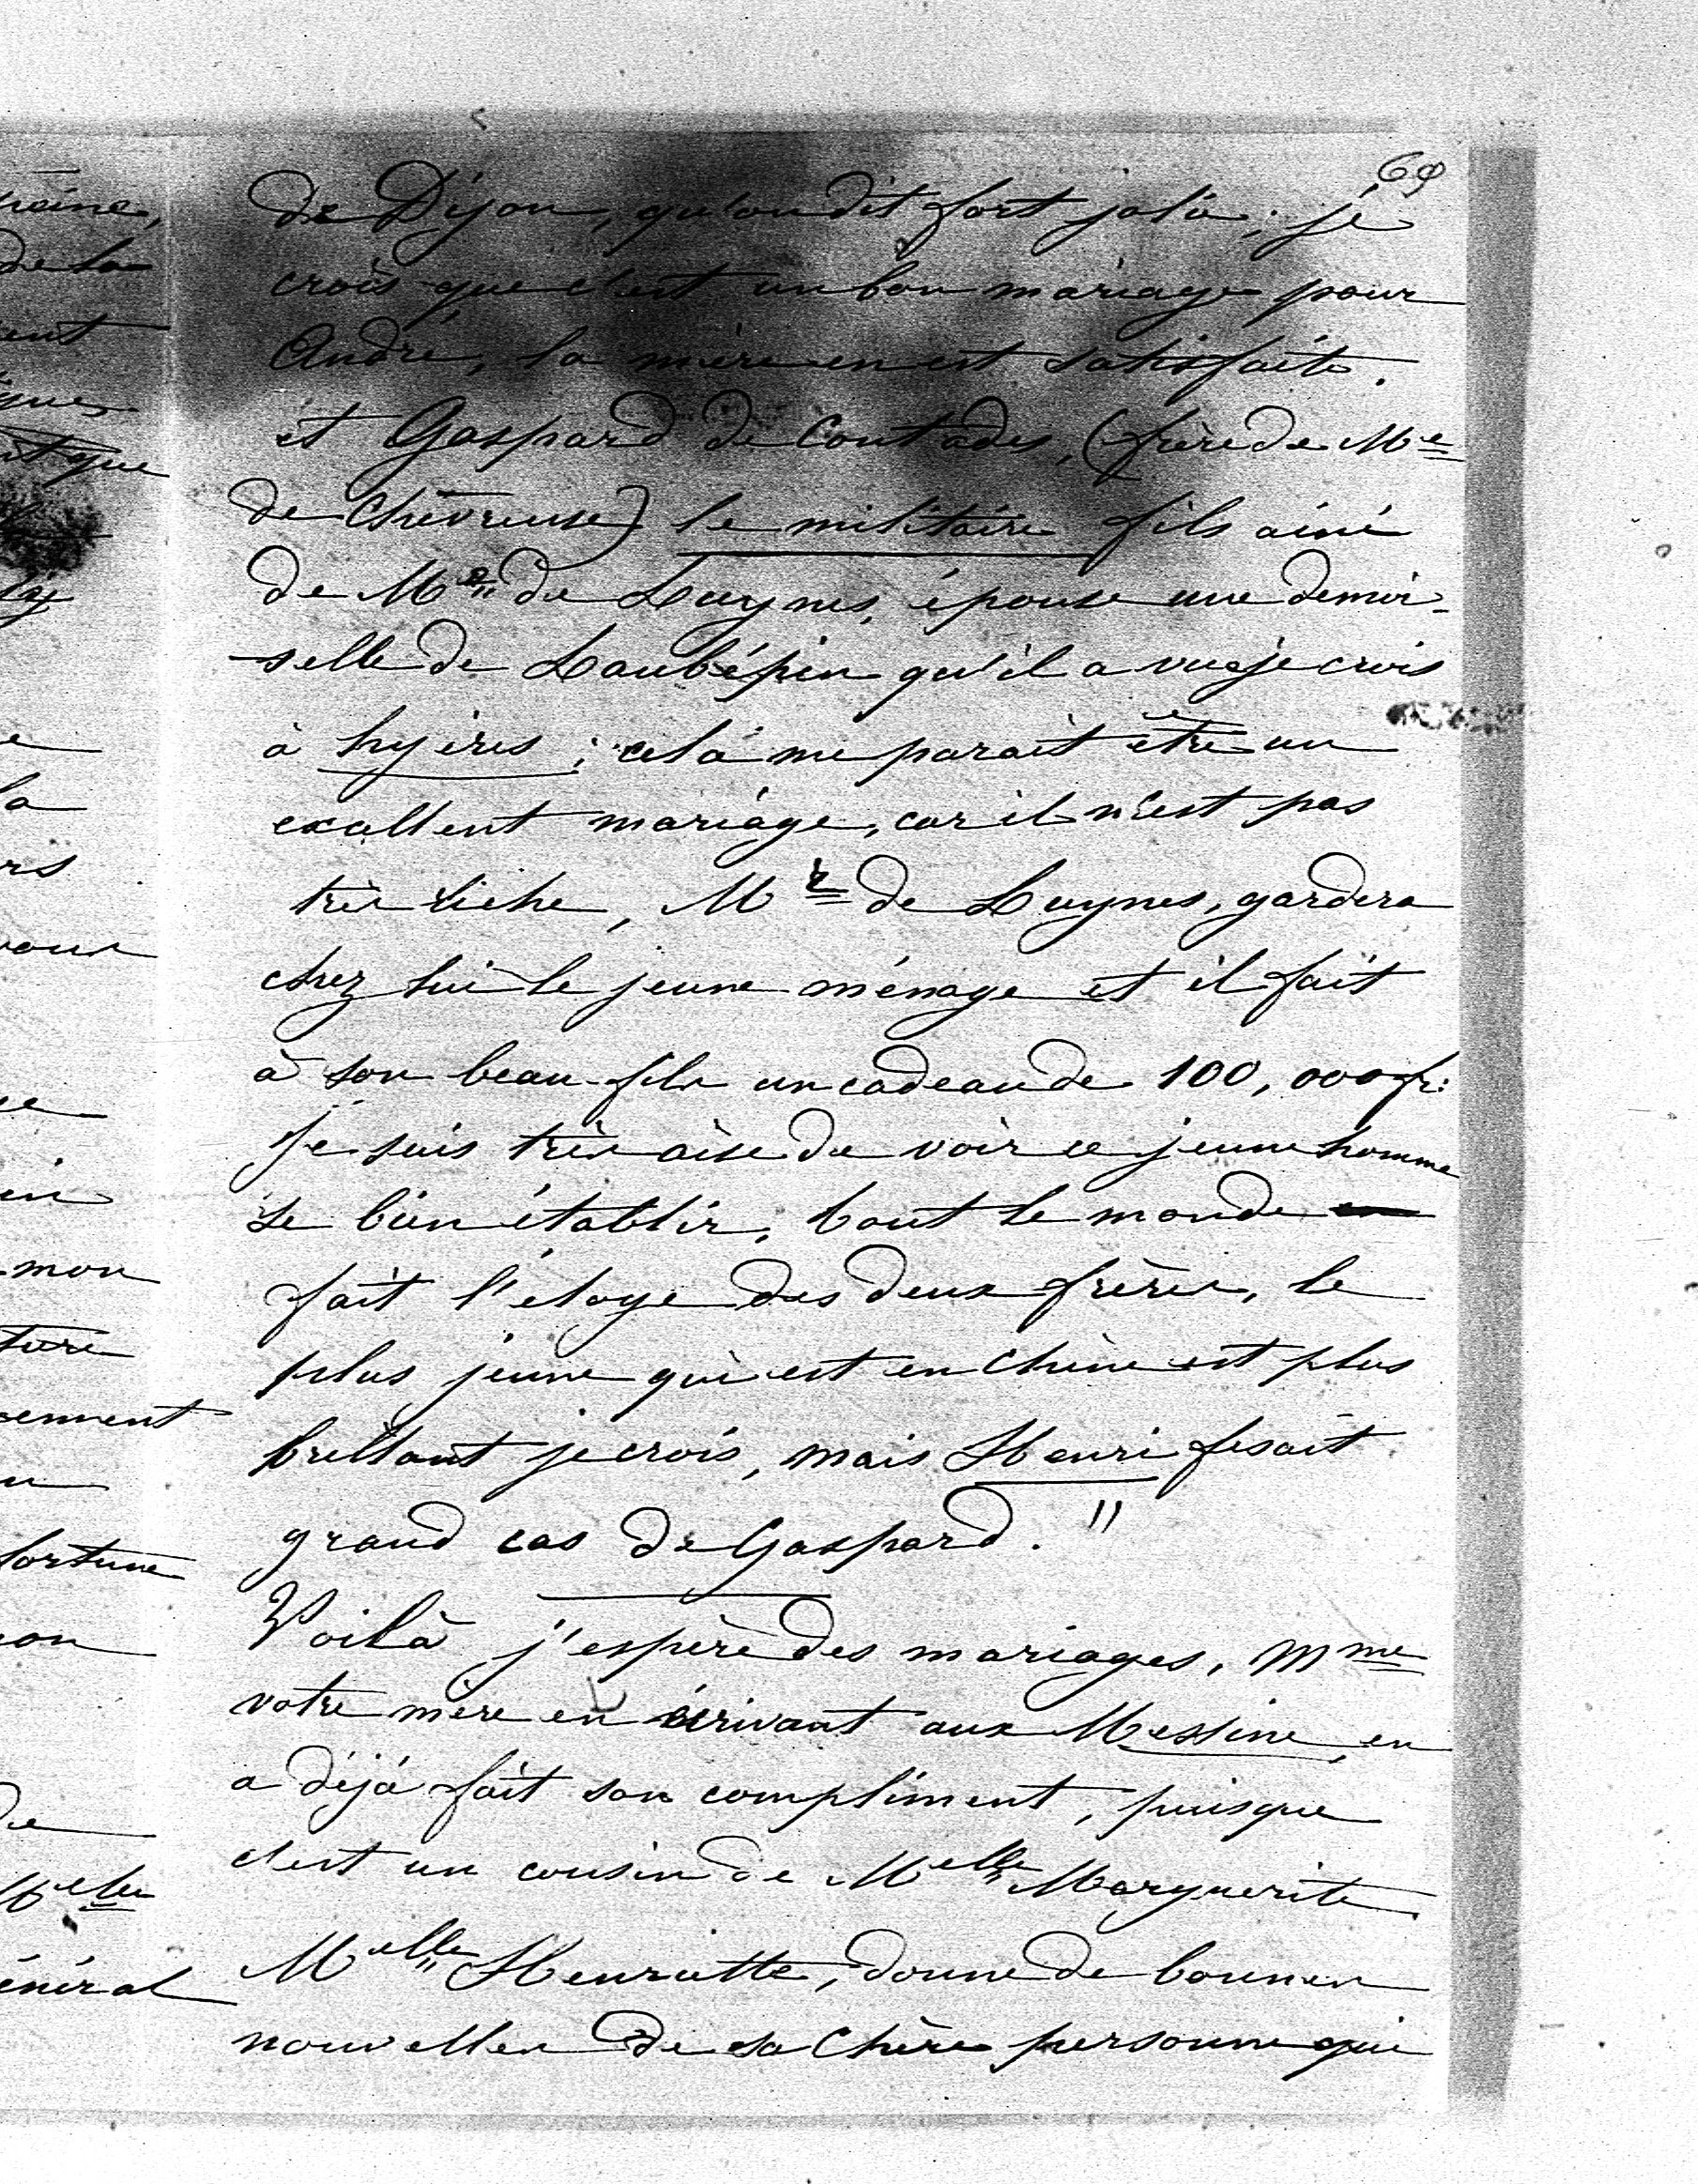 69
de Dijon, qu'on dit fort jolie ; je
crois que c'est un bon mariage pour
André, la mère en est satisfaite.
et Gaspard de Contades, (frère de Me
de Chevreuse) le militaire fils ainé
de Me de Luynes, épouse une demoi-
-selle de Laubépin qu'il a vue je crois
à hyères ; cela me parait être un
excellent mariage, car il n'est pas
très riche, Mr de Luynes, gardera
chez lui le jeune ménage et il fait
à son beau-fils un cadeau de 100,000 fr:
Je suis très aise de voir ce jeune homme
se bien établir, tout le monde
fait l'éloge des deux frères, le
plus jeune qui est en Chine est plus
brillant je crois, mais Henri fesait
grand cas de Gaspard. "
Voilà j'espère des mariages, Mme
votre mère en écrivant aux Messine, en
a déjà fait son compliment, puisque
c'est un cousin de Melle Marguerite
Melle Henriette, donne de bonnes
nouvelles de sa chère personne qui
ent
que
la
rs
mon
ture
fortune
de
Melle
énéral